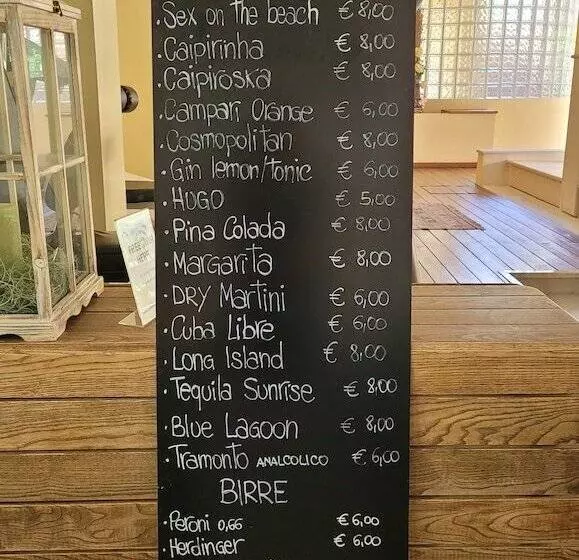 · Sex on the beach € 8,00
· Caipirinha € 8,00
· Caipiroska € 8,00
· Campari Orange € 6,00
· Cosmopolitan € 8,00
· Gin lemon/tonic € 6,00
· HUGO € 5,00
· Pina Colada € 8,00
· Margarita € 8,00
· DRY Martini € 6,00
· Cuba Libre € 6,00
· Long Island € 8,00
· Tequila Sunrise € 8,00
· Blue Lagoon € 8,00
· Tramonto ANALCOLICO € 6,00
BIRRE
· Peroni 0,66 € 6,00
· Herdinger € 6,00